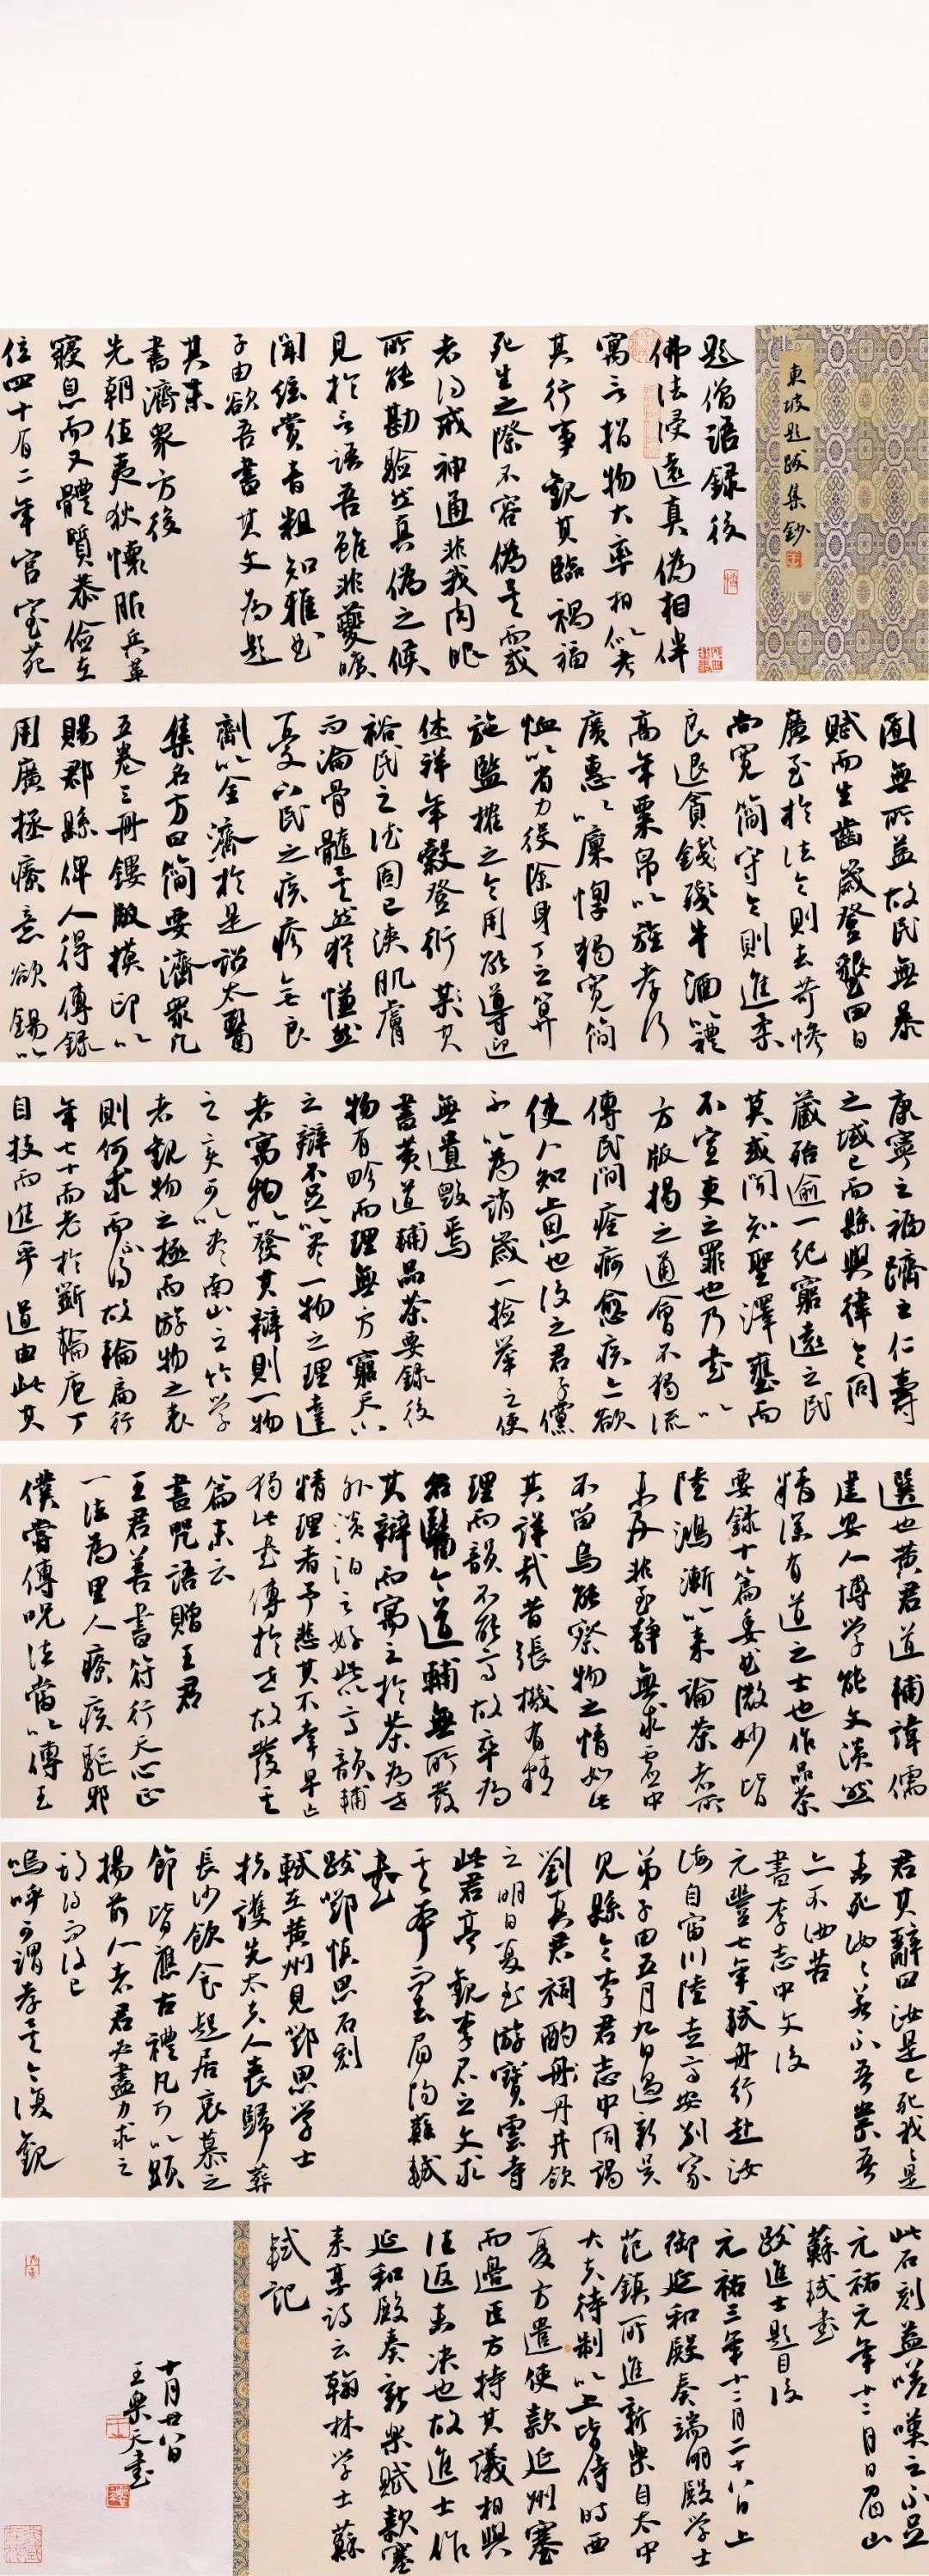 東坡題跋集鈔
題僧語録後
佛法浸遠真偽相半
寓言指物大率相似考
其行事觀其臨禍福
死生之際不容偽矣而或
者得戒神通非我肉眼
所能勘驗然真偽之候
見於言語吾雖非夔曠
聞絃賞音粗知雅曲
子由欲吾書其文為題
其末
書濟衆方後
先朝值夷狄懷服兵革
寢息而又體質恭儉在
位四十有二年宮室苑
囿無所益故民無暴
賦而生齒歲登墾田日
廣至於法令則去苛慘
尚寬簡守令則進柔
良退貪殘牛酒禮
高年粟帛以旌孝行
廣惠以廩惸獨寬簡
恤以省力役除身丁之算
施監榷之令用能導迎
休祥年穀登衍其於
裕民之德固已浹肌膚
而淪骨髓矣然猶慊然
憂下民之疾疹無良
劑以全濟於是詔太醫
集名方曰簡要濟衆凡
五卷三冊鏤版模印以
賜郡縣俾人得傳録
用廣拯療意欲錫以
康寧之福躋之仁壽
之域已而縣與律令同
藏殆逾一紀窮遠之民
莫或聞知聖澤壅而
不宣吏之罪也乃書以
方版揭之通會不獨流
傳民間痊痾愈疾亦欲
使人知上恩也後之君子儻
不以為誚歲一檢舉之使
無遺毀焉
書黃道輔品茶要録後
物有畛而理無方窮天下
之辯不足以盡一物之理達
者寓物以發其辯則一物
之變可以盡南山之竹學
者觀物之極而游物之表
則何求而不得故輪扁行
年七十而老於斲輪庖丁
自技而進乎道由此其
選也黃君道輔諱儒
建安人博學能文淡然
精深有道之士也作品茶
要録十篇委曲微妙皆
陸鴻漸以來論茶者所
未及非至靜無求虛中
不留烏能察物之情如此
其詳哉昔張機有精
理而韻不能高故卒為
名醫今道輔無所發
其辯而寓之於茶為世
外淡泊之好此以高韻輔
精理者予悲其不幸早亡
獨此書傳於世故發其
篇末云
書咒語贈王君
王君善書符行天心正
一法為里人療疾驅邪
僕嘗傳咒法當以傳王
君其辭曰汝是已死我我是
未死汝汝若不吾祟吾
亦不汝苦
書李志中文後
元豐七年軾舟行赴汝
海自富川陸走高安別家
弟子由五月九日過新吳
見縣令李君志中同謁
劉真君祠酌丹井飲
之明日夏至游寶雲寺
此君亭觀李君之文求
其本而去眉陽蘇軾
書
跋鄧慎思石刻
軾在黃州見鄧思學士
扶護先太夫人喪歸葬
長沙飲食起居哀慕之
節皆應古禮凡可以顯
揚前人者君必盡力求之
期得而後已
嗚呼可謂孝矣今復觀
此石刻益嗟嘆之不足
元祐元年十二月日眉山
蘇軾書
跋進士題目後
元祐三年十二月二十八日上
御延和殿奏端明殿學士
范鎮所進新樂自太中
大夫待制以上皆侍時西
夏方遣使款延州塞
而邊臣方持其議相與
往返未決也故進士作
延和殿奏新樂賦款塞
來享詩云翰林學士蘇
軾記
十月廿八日
王樂天書